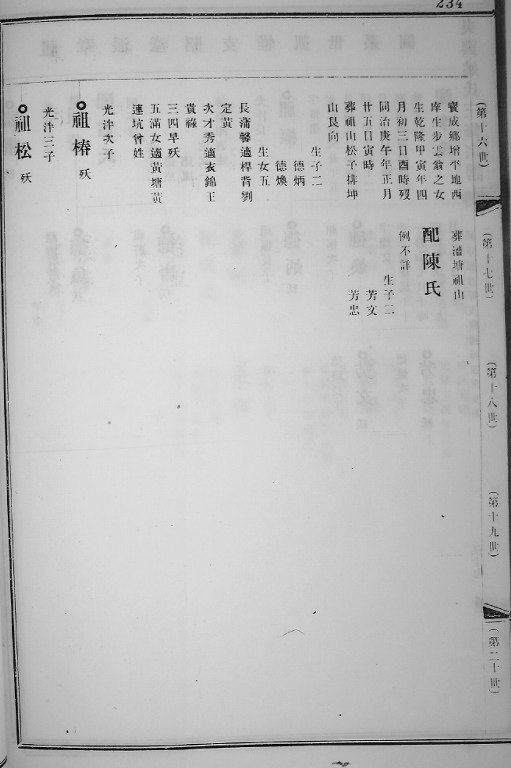 234
(第十六世)
(第十七世)
(第十八世)
(第十九世)
(第二十世)
寶成鄉增平地西
庠生步雲翁之女
生乾隆甲寅年四
月初三日酉時歿
同治庚午年正月
廿五日寅時
葬祖山松子排坤
山艮向
生子二
德炳
德煥
生女五
長蒲馨適桿背劉
定黃
次才秀適亥錦王
貴祿
三四早殀
五滿女適黃塘黃
連坑曾姓
葬澧塘祖山
配陳氏
例不詳
生子二
芳文
芳忠
光洋次子
祖椿 殀
光洋三子
祖松 殀